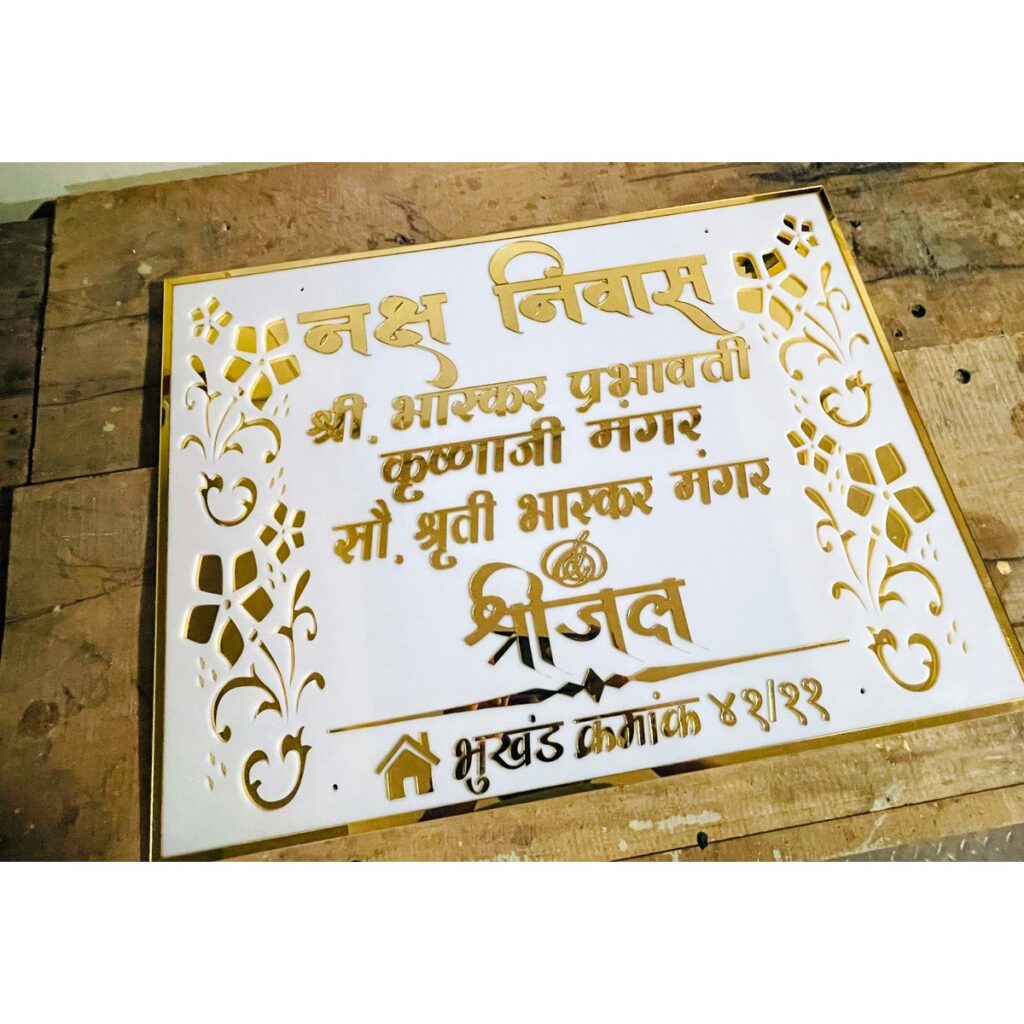 नक्ष निवास
श्री. भास्कर प्रभावती
कृष्णाजी मंगर
सौ. श्रृती भास्कर मंगर
श्रीजल
भुखंड क्रमांक ४१/११